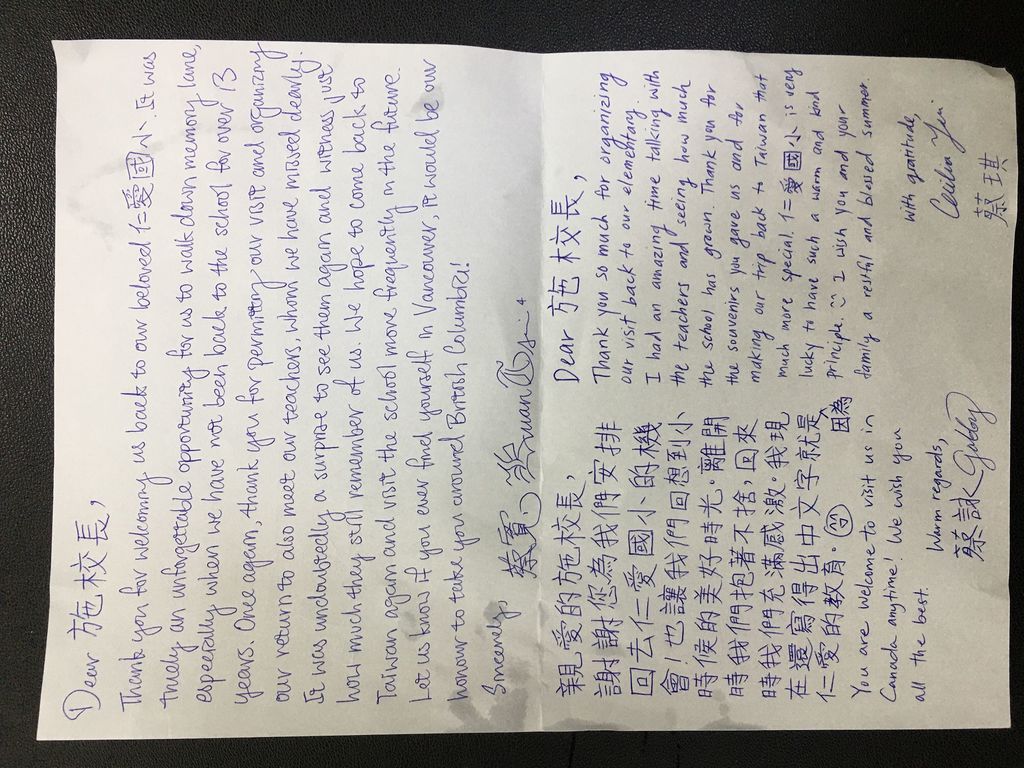 Dear 施校長,
Thank you for welcoming us back to our beloved 仁愛國小. It was
truly an unforgetable opportunity for us to walk down memory lane,
especially when we have not been back to the school for over 13
years. Once again, thank you for permitting our visit and organizing
our return to also meet our teachers, whom we have missed dearly.
It was undoubtedly a surprise to see them again and witness just
how much they still remember of us. We hope to come back to
Taiwan again and visit the school more frequently in the future.
Let us know if you ever find yourself in Vancouver, it would be our
honour to take you around British Columbia!
Sincerely,
親愛的施校長,
謝謝您為我們安排
回去仁愛國小的機
會!也讓我們回想到小
時候的美好時光。離開
時我們抱著不捨,回來
時我們充滿感激。我現
在還寫得出中文字就是因為
仁愛的教育。
You are welcome to visit us in
Canada anytime! We wish you
all the best.
Warm regards,
蔡詠
Dear 施校長,
Thank you so much for organizing
our visit back to our elementary.
I had an amazing time talking with
the teachers and seeing how much
the school has grown. Thank you for
the souvenirs you gave us and for
making our trip back to Taiwan that
much more special. 仁愛國小 is very
lucky to have such a warm and kind
principle. I wish you and your
family a restful and blessed summer.
with gratitude,
Cecilia
蔡琪